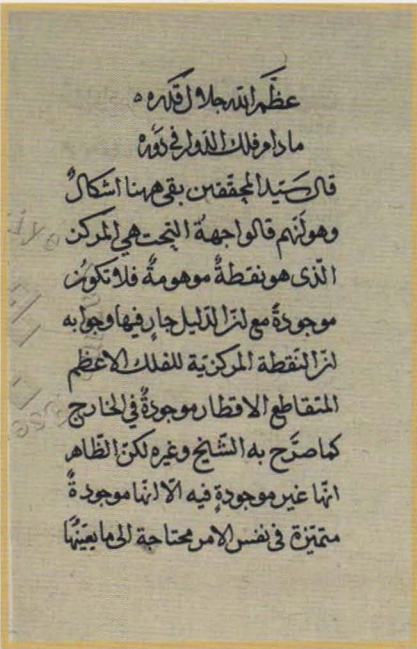 عظَّم اللّه جلال قَدره
مادام فلك الدّوار فى دَوره
قال سَيّد المحقّقين بقى ههنا اشكالٌ
وهو أنّهم قالوا جهةُ التحت هى المركز
الّذى هو نقطةٌ موهومةٌ فلا تكون
موجودةً مع انّ الدّليل جارٍ فيها وجوابه
انّ النّقطة المركزيّة للفلك الاعظم
المتقاطع الاقطار موجودةٌ فى الخارج
كما صرَّح به الشّيخ وغيره لكن الظّاهر
انّها غير موجودةٍ فيه الّا انّها موجودةٌ
متميّزة فى نفس الامر محتاجة الى ما يعيّنُها